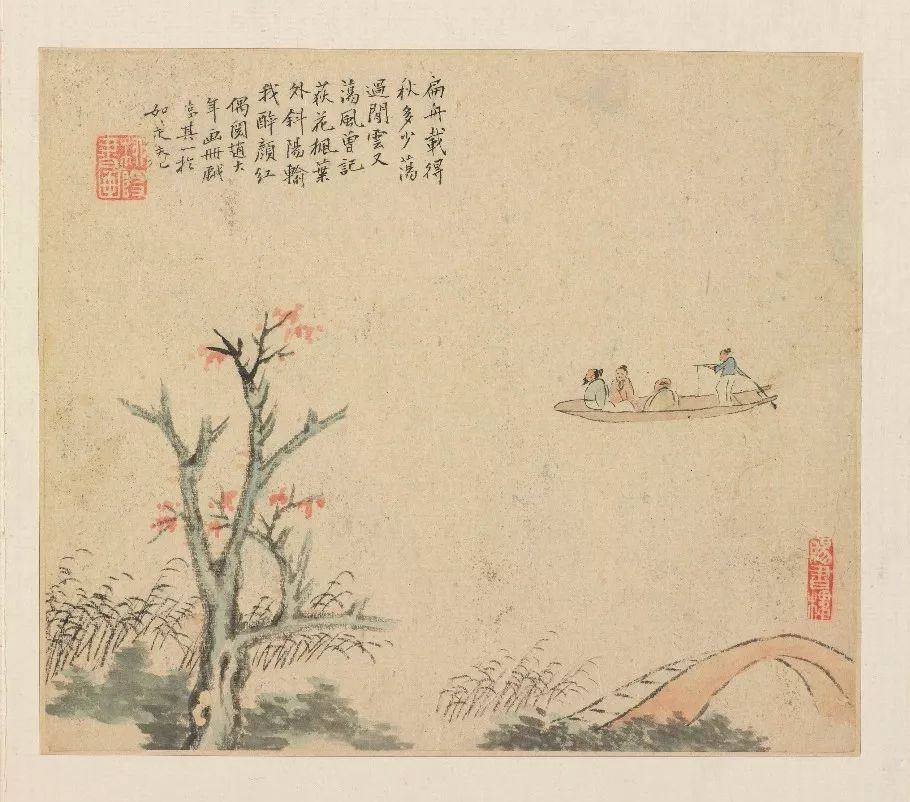 扁舟載得
秋多少蕩
過閒雲又
蕩風曾記
荻花楓葉
外斜陽輸
我醉顏紅
偶閱趙大
年画冊戲
其一於
如是
賜書樓